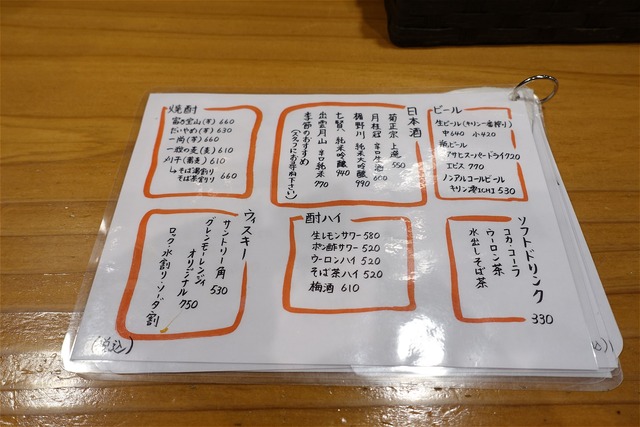 焼酎
富乃宝山(芋) 660
だいやめ(芋) 630
一尚(芋) 660
一粒の麦(麦) 610
刈干(蕎麦) 610
しゅそば湯割り
そば茶割り 660
日本酒
菊正宗 上撰 550
月桂冠 辛口生酒 600
梅野川 純米大吟醸 990
七賢 純米吟醸 940
出雲月山 辛口純米 770
季節のおすすめ
(スタッフにお尋ね下さい)
ビール
生ビール(キリン一番搾り)
中640 小420
瓶ビール
アサヒスーパードライ720
エビス 770
ノンアルコールビール
キリン零ICHI 530
ウィスキー
サントリー角 530
グレンモーレンジィ
オリジナル 750
ロック・水割り・ソーダ割
酎ハイ
生レモンサワー 580
ポン酢サワー 520
ウーロンハイ 520
そば茶ハイ 520
梅酒 610
ソフトドリンク
コカ・コーラ
ウーロン茶
水出しそば茶
330
(税込)